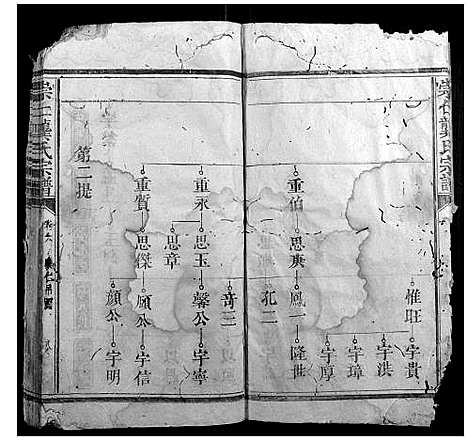 崇仁龔氏宗譜
惟旺
宇貴
宇洪
宇璋
宇厚
重伯
思庚
鳳一
隆世
孔二
奇三
重永
思玉
馨公
宇寧
思章
重質
思傑
願公
宇信
顏公
宇明
第二提
崇仁龔氏宗譜